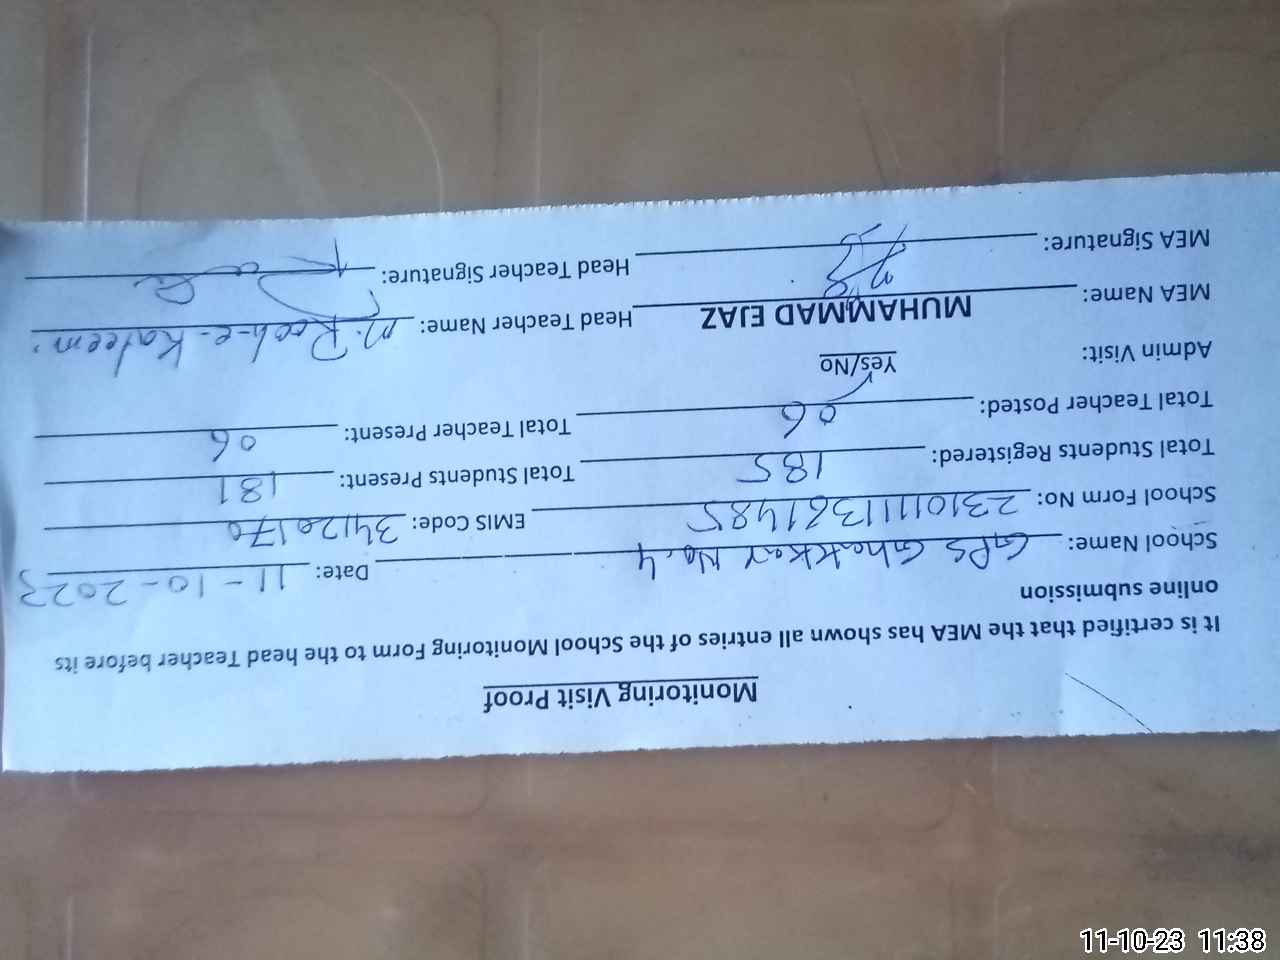 Monitoring Visit Proof
It is certified that the MEA has shown all entries of the School Monitoring Form to the head Teacher before its
online submission
School Name: GPS Ghakkar No.4 Date: 11-10-2023
School Form No: 2310111361485 EMIS Code: 34120170
Total Students Registered: 185 Total Students Present: 181
Total Teacher Posted: 06 Total Teacher Present: 06
Admin Visit: Yes/No
MEA Name: MUHAMMAD EJAZ Head Teacher Name: M. Rooh-e-Kaleem
MEA Signature: Head Teacher Signature:
11-10-23 11:38